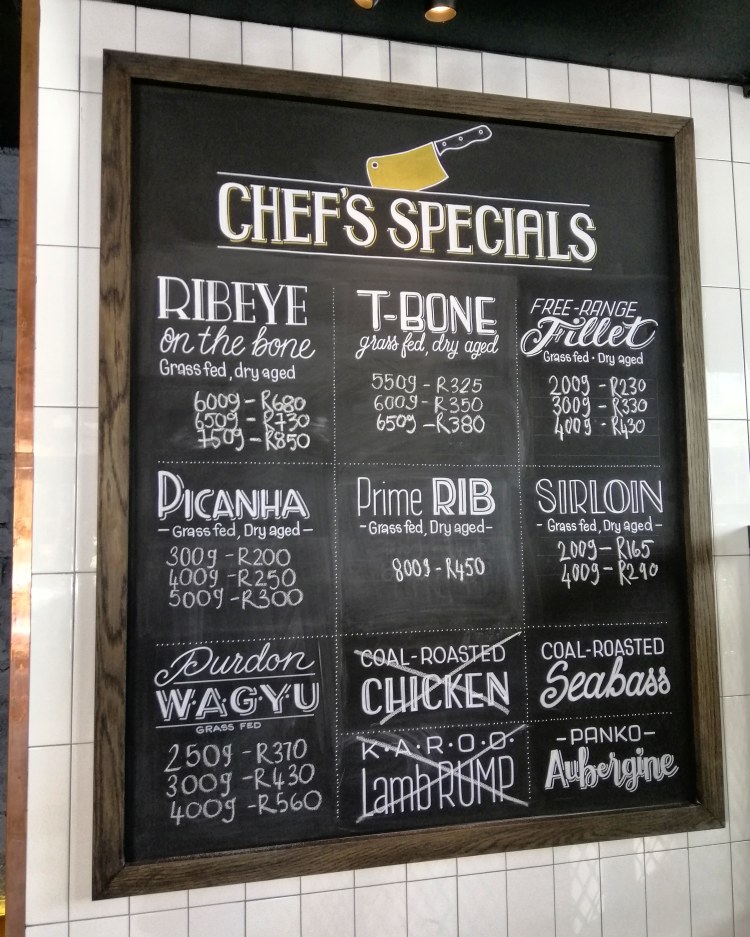 CHEF'S SPECIALS
RIBEYE
on the bone
Grass fed, dry aged
600g - R680
650g - R730
750g - R850
T-BONE
grass fed, dry aged
550g - R325
600g - R350
650g - R380
FREE-RANGE
Fillet
Grass fed · Dry aged
200g - R230
300g - R330
400g - R430
PICANHA
- Grass fed, Dry aged -
300g - R200
400g - R250
500g - R300
Prime RIB
- Grass fed, Dry aged -
800g - R450
SIRLOIN
- Grass fed, Dry aged -
200g - R165
400g - R290
Purdon
WAGYU
GRASS FED
250g - R370
300g - R430
400g - R560
COAL-ROASTED
CHICKEN
K·A·R·O·O·
Lamb RUMP
COAL-ROASTED
Seabass
- PANKO -
Aubergine